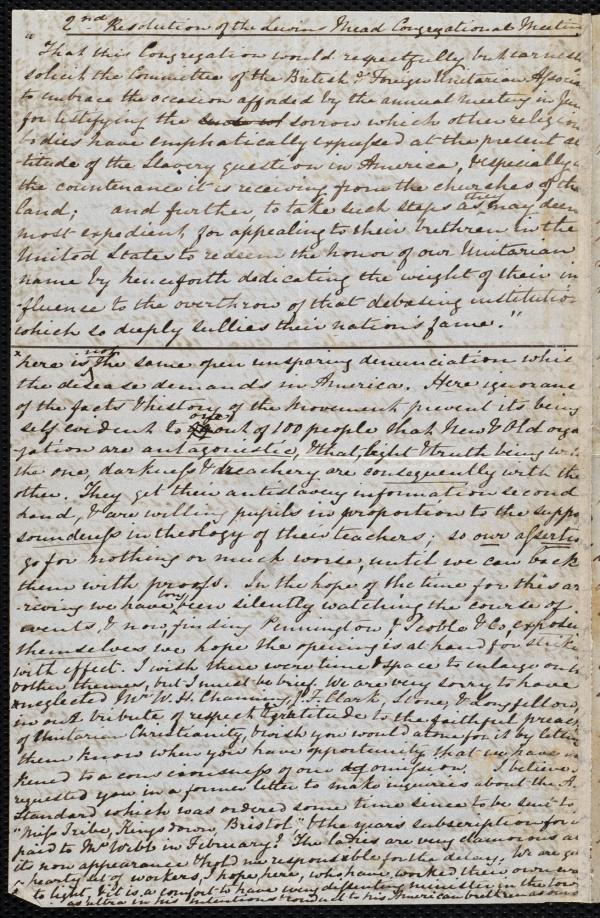 2nd Resolution of the Lewin's Mead Congregational Meeting
"That this Congregation would respectfully but earnestly
solicit the Committee of the British & Foreign Unitarian Associa
to embrace the occasion afforded by the annual meeting in June
for testifying the sorrow which other religious
bodies have emphatically expressed at the present at
titude of the Slavery question in America, & especially at
the countenance it is receiving from the churches of the
land; and further, to take such steps as they may deem
most expedient for appealing to their brethren in the
United States to redeem the honor of our Unitarian
name by henceforth dedicating the weight of their in
fluence to the overthrow of that debasing institution
which so deeply sullies their nation's fame."
x here is not the same open unsparing denunciation which
the disease demands in America. Here ignorance
of the facts & history of the movement prevent its being
self evident to one out of 100 people that New & Old orga
nization are antagonistic, & that, light & truth being with
the one, darkness & treachery are consequently with the
other. They get their antislavery information second
hand, & are willing pupils in proportion to the suppo
soundness in theology of their teachers; so our assertio
go for nothing or much worse, until we can back
them with proofs. In the hope of the time for this ar
-riving we have long been silently watching the course of
events, & now, finding Pennington, Scoble & Co, expose
themselves, we hope the opening is at hand for striki
with effect. I wish there were time & space to enlarge on
other themes, but I must be brief. We are very sorry to have
neglected Mr W. H. Channing, J. F. Clark, Stone, & Longfellow,
in our tribute of respect & gratitude to the faithful preach
of Unitarian Christianity, & wish you would atone for it by letting
them know when you have opportunity that we have
kened to a consciousness of our omission. I believe I
requested you in a former letter to make inquiries about the A.
Standard which was ordered some time since to be sent to
"Miss Tribe, Kingsdown, Bristol" & the years subscription for it
paid to Mr Webb in February? The ladies are very clamorous at
its non appearance & hold me responsible for the delay. We are get
hearty set of workers, I hope, here, who have worked their own way
to light, & it is a comfort to have every dissenting minister in the town
as ultra in his intentions &c